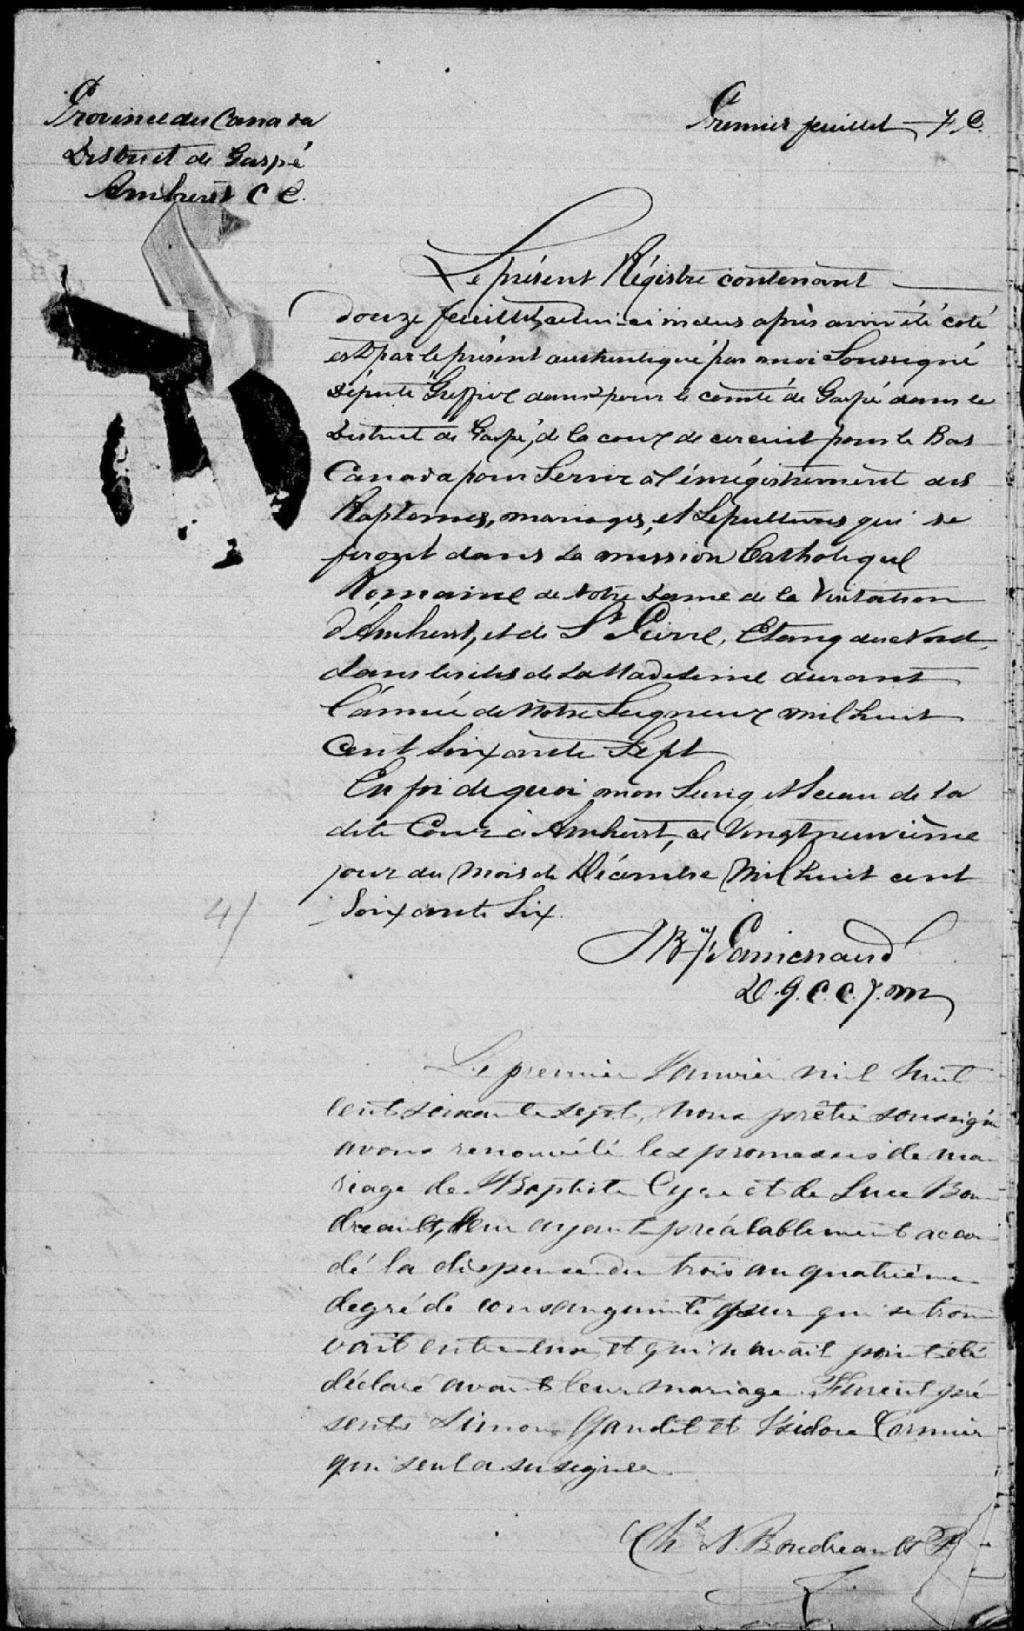 Province du Canada
District de Gaspé
Amherst C C.
Premier feuillet
Le présent Régistre contenant
douze feuillets, celui-ci inclus après avoir été coté
est par le présent authentiqué par moi Soussigné
Député Greffier dans & pour le comté de Gaspé dans le
District de Gaspé, de la cour de circuit pour le Bas
Canada pour Servir à l'énrégistrement des
Baptemes, mariages, et Sépultures qui se
feront dans la mission Catholique
Romaine de Notre Dame de la Visitation
d'Amherst, et de St Pierre, Etang du Nord,
dans les iles de la Madeleine durant
l'année de Notre Seigneur mil huit
Cent Soixante Sept
En foi de quoi mon Seing et Sceau de la
dite Cour à Amherst, ce Vingt neuvième
jour du Mois de Décembre Mil huit cent
Soixante Six.
4/
D. G. C. C. J. M
Le premier Janvier mil huit
cent soixante sept, nous prêtre soussigné
avons renouvélé les promesses de ma
riage de JBaptiste Cyre et de Luce Bou
dreault, leur ayant préalablement accor
dé la dispense du trois au quatrième
degré de consanguinité qui se trou
vait entre eux et qui n'avait point été
déclaré avant leur mariage. Furent pré
sents Simon Gaudet et Isidore Cormier
qui seul a su signer
Chs N. Boudreault Ptr